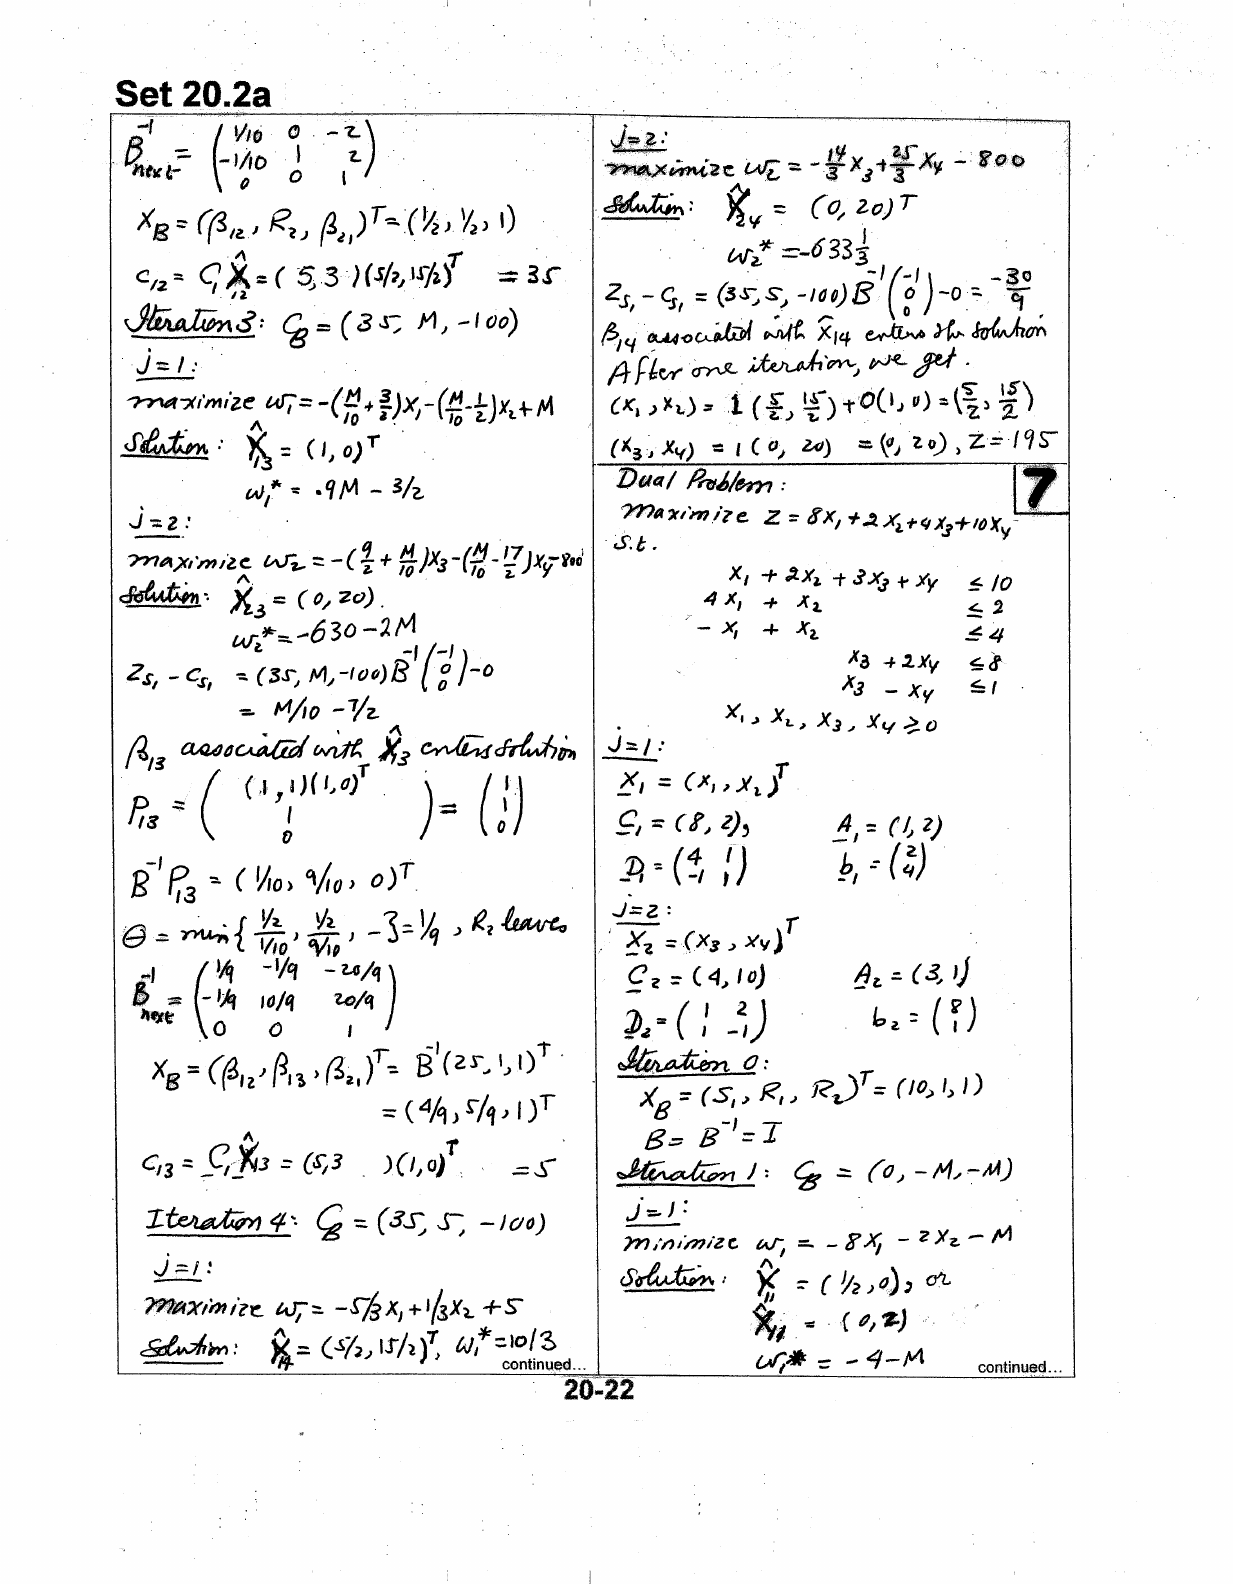 Set 20.2a
B⁻¹next = (1/10 0 -2
-1/10 1 2
0 0 1)
X_B = (β₁₂, R₂, β₂₁)ᵀ = (1/2, 1/2, 1)
C₁₂ = C₁X̂₁₂ = (5,3)(5/2, 15/2)ᵀ = 35
Iteration 3: C_B = (35, M, -100)
j=1:
maximize w₁ = -(M/10 + 3/2)x₁ - (M/10 - 1/2)x₂ + M
Solution: X̂₁₃ = (1, 0)ᵀ
w₁* = .9M - 3/2
j=2:
maximize w₂ = -(9/2 + M/10)x₃ - (M/10 - 17/2)x₄ - 800
Solution: X̂₂₃ = (0, 20).
w₂* = -630 - 2M
Z_S₁ - C_S₁ = (35, M, -100)B⁻¹(-1 0 0) - 0
= M/10 - 7/2
β₁₃ associated with X̂₁₃ enters solution
P₁₃ = ((1,1)(1,0)ᵀ
1
0) = (1
1
0)
B⁻¹P₁₃ = (1/10, 9/10, 0)ᵀ
θ = min{(1/2)/(1/10), (1/2)/(9/10), -} = 1/9, R₂ leaves
B⁻¹next = (1/9 -1/9 -20/9
-1/9 10/9 20/9
0 0 1)
X_B = (β₁₂, β₁₃, β₂₁)ᵀ = B⁻¹(25, 1, 1)ᵀ
= (4/9, 5/9, 1)ᵀ
C₁₃ = C₁X̂₁₃ = (5,3)(1,0)ᵀ = 5
Iteration 4: C_B = (35, 5, -100)
j=1:
maximize w₁ = -5/3 x₁ + 1/3 x₂ + 5
Solution: X̂₁₄ = (5/2, 15/2)ᵀ, w₁* = 10/3
continued...
j=2:
maximize w₂ = -14/3 x₃ + 25/3 x₄ - 800
Solution: X̂₂₄ = (0, 20)ᵀ
w₂* = -633 1/3
Z_S₁ - C_S₁ = (35, 5, -100)B⁻¹(-1 0 0) - 0 = -30/9
β₁₄ associated with X̂₁₄ enters the solution
After one iteration, we get.
(x₁, x₂) = 1(5/2, 15/2) + 0(1, 0) = (5/2, 15/2)
(x₃, x₄) = 1(0, 20) = (0, 20), Z = 195
7
Dual Problem:
maximize Z = 8x₁ + 2x₂ + 4x₃ + 10x₄
s.t.
x₁ + 2x₂ + 3x₃ + x₄ ≤ 10
4x₁ + x₂ ≤ 2
-x₁ + x₂ ≤ 4
x₃ + 2x₄ ≤ 8
x₃ - x₄ ≤ 1
x₁, x₂, x₃, x₄ ≥ 0
j=1:
X₁ = (x₁, x₂)ᵀ
C₁ = (8, 2), A₁ = (1, 2)
D₁ = (4 1
-1 1) b₁ = (2
4)
j=2:
X₂ = (x₃, x₄)ᵀ
C₂ = (4, 10) A₂ = (3, 1)
D₂ = (1 2
1 -1) b₂ = (8
1)
Iteration 0:
X_B = (S₁, R₁, R₂)ᵀ = (10, 1, 1)
B = B⁻¹ = I
Iteration 1: C_B = (0, -M, -M)
j=1:
minimize w₁ = -8x₁ - 2x₂ - M
Solution: X̂₁₁ = (1/2, 0), or
X̂₁₁ = (0, 2)
w₁* = -4-M
continued...
20-22